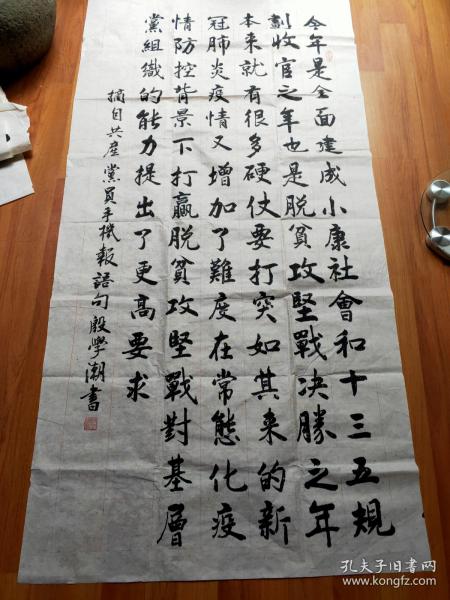 今年是全面建成小康社會和十三五規
劃收官之年也是脱貧攻堅戰决勝之年
本来就有很多硬仗要打突如其来的新
冠肺炎疫情又增加了難度在常態化疫
情防控背景下打贏脱貧攻堅戰對基層
黨組織的能力提出了更高要求
摘自共産黨員手機報語句殷學潮書
孔夫子旧书网
www.kongfz.com